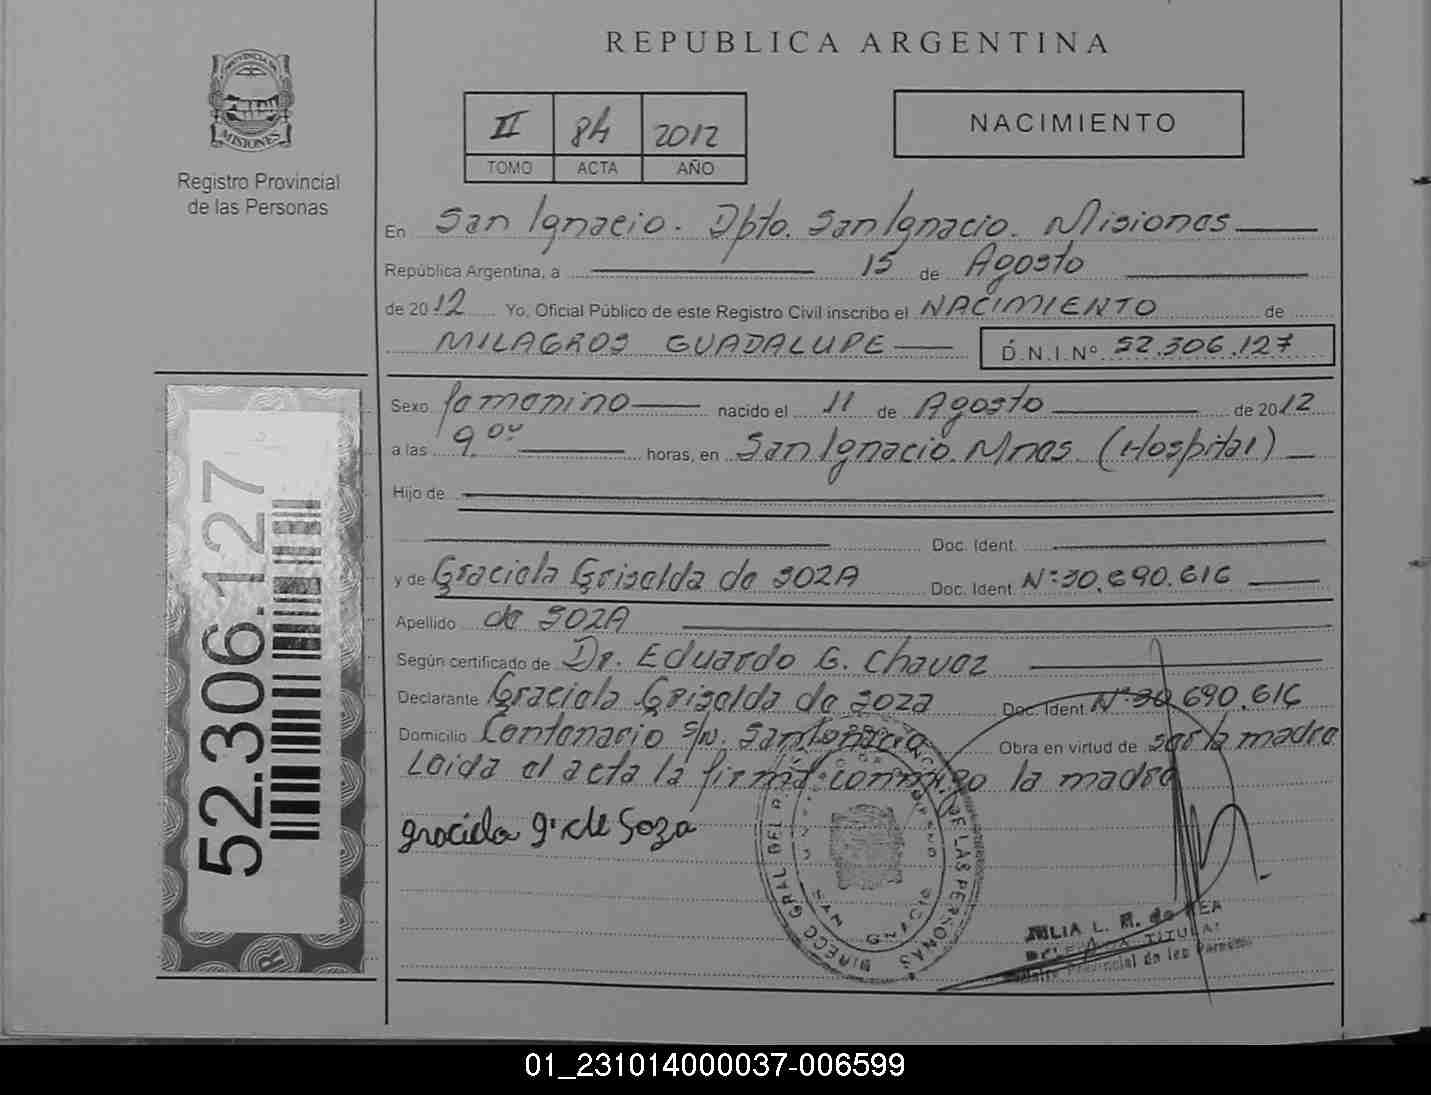 REPUBLICA ARGENTINA
PROVINCIA DE
MISIONES
Registro Provincial
de las Personas
II 84 2012
TOMO ACTA AÑO
NACIMIENTO
En San Ignacio. Dpto. San Ignacio. Misiones
República Argentina, a 15 de Agosto
de 2012 Yo, Oficial Público de este Registro Civil inscribo el NACIMIENTO de
MILAGROS GUADALUPE D.N.I.Nº 52.306.127
Sexo femenino nacido el 11 de Agosto de 2012
a las 9.00 horas, en San Ignacio. Mnes. (Hospital)
Hijo de
Doc. Ident.
y de Graciela Griselda de SOZA Doc. Ident. Nº:30.690.616
Apellido de SOZA
Según certificado de Dr. Eduardo G. Chavez
Declarante Graciela Griselda de Soza Doc. Ident. Nº:30.690.616
Domicilio Centenario S/N. San Ignacio Obra en virtud de ser la madre
Leida el acta la firma conmigo la madre
graciela g. de Soza
52.306.127
DIRECC GRAL DEL LAS PERSONAS
JULIA L. M. de
TITULAR
Provincial de las Personas
01_231014000037-006599